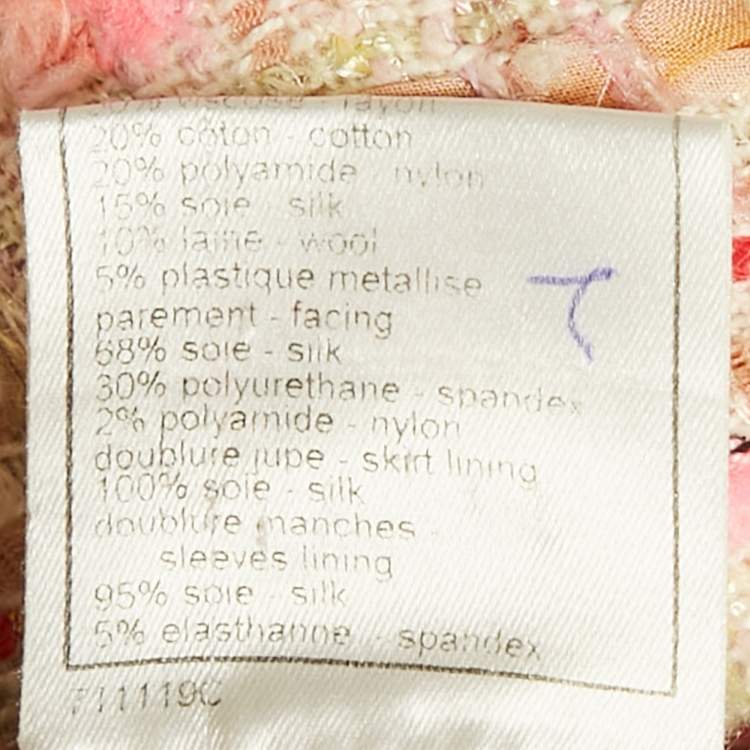 viscose - rayon
20% coton - cotton
20% polyamide - nylon
15% soie - silk
10% laine - wool
5% plastique metallise
parement - facing
68% soie - silk
30% polyurethane - spandex
2% polyamide - nylon
doublure jupe - skirt lining
100% soie - silk
doublure manches -
sleeves lining
95% soie - silk
5% elasthanne - spandex
711119C